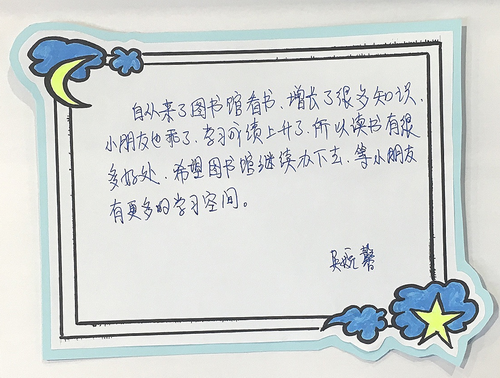 自从来了图书馆看书、增长了很多知识、
小朋友也乖了、学习成绩上升了、所以读书有很
多好处、希望图书馆继续办下去、等小朋友
有更多的学习空间。
吴